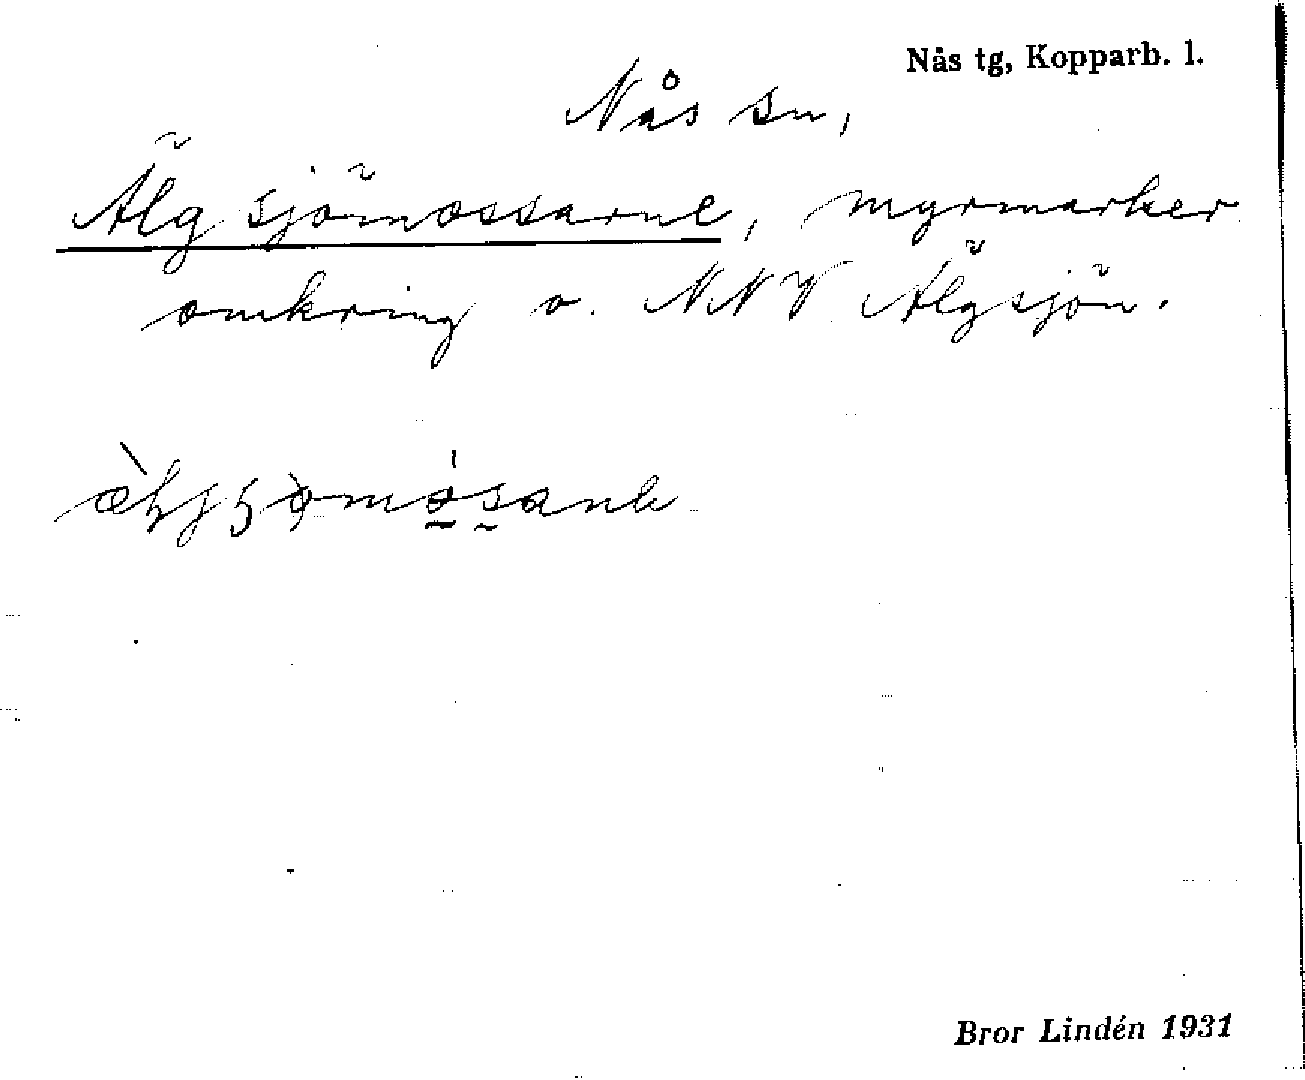 Nås tg, Kopparb. l.
Nås sn,
Älgsjömossarne, myrmarker
omkring o. NNV Älgsjön.
Bror Lindén 1931